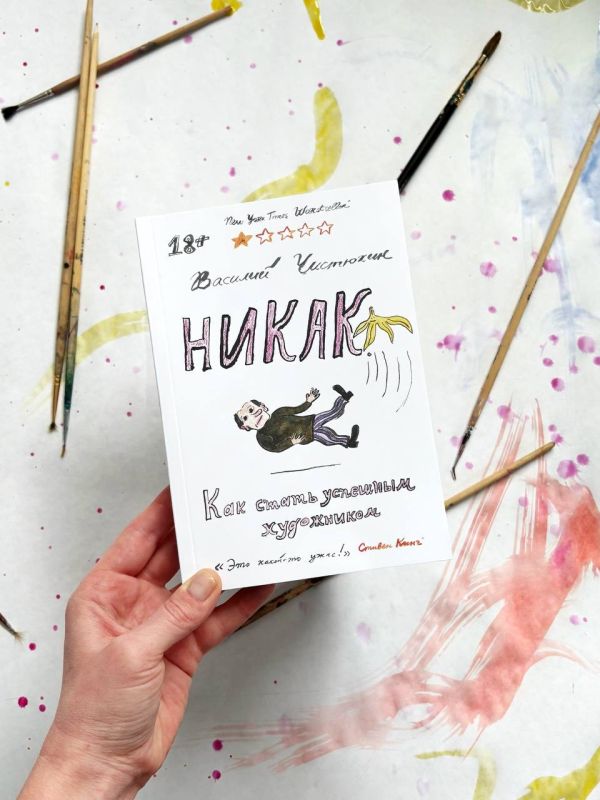 New York Times Worstseller
18+
Василий Чистюхин
НИКАК
Как стать успешным
художником
«Это какой-то ужас!» Стивен Кинг